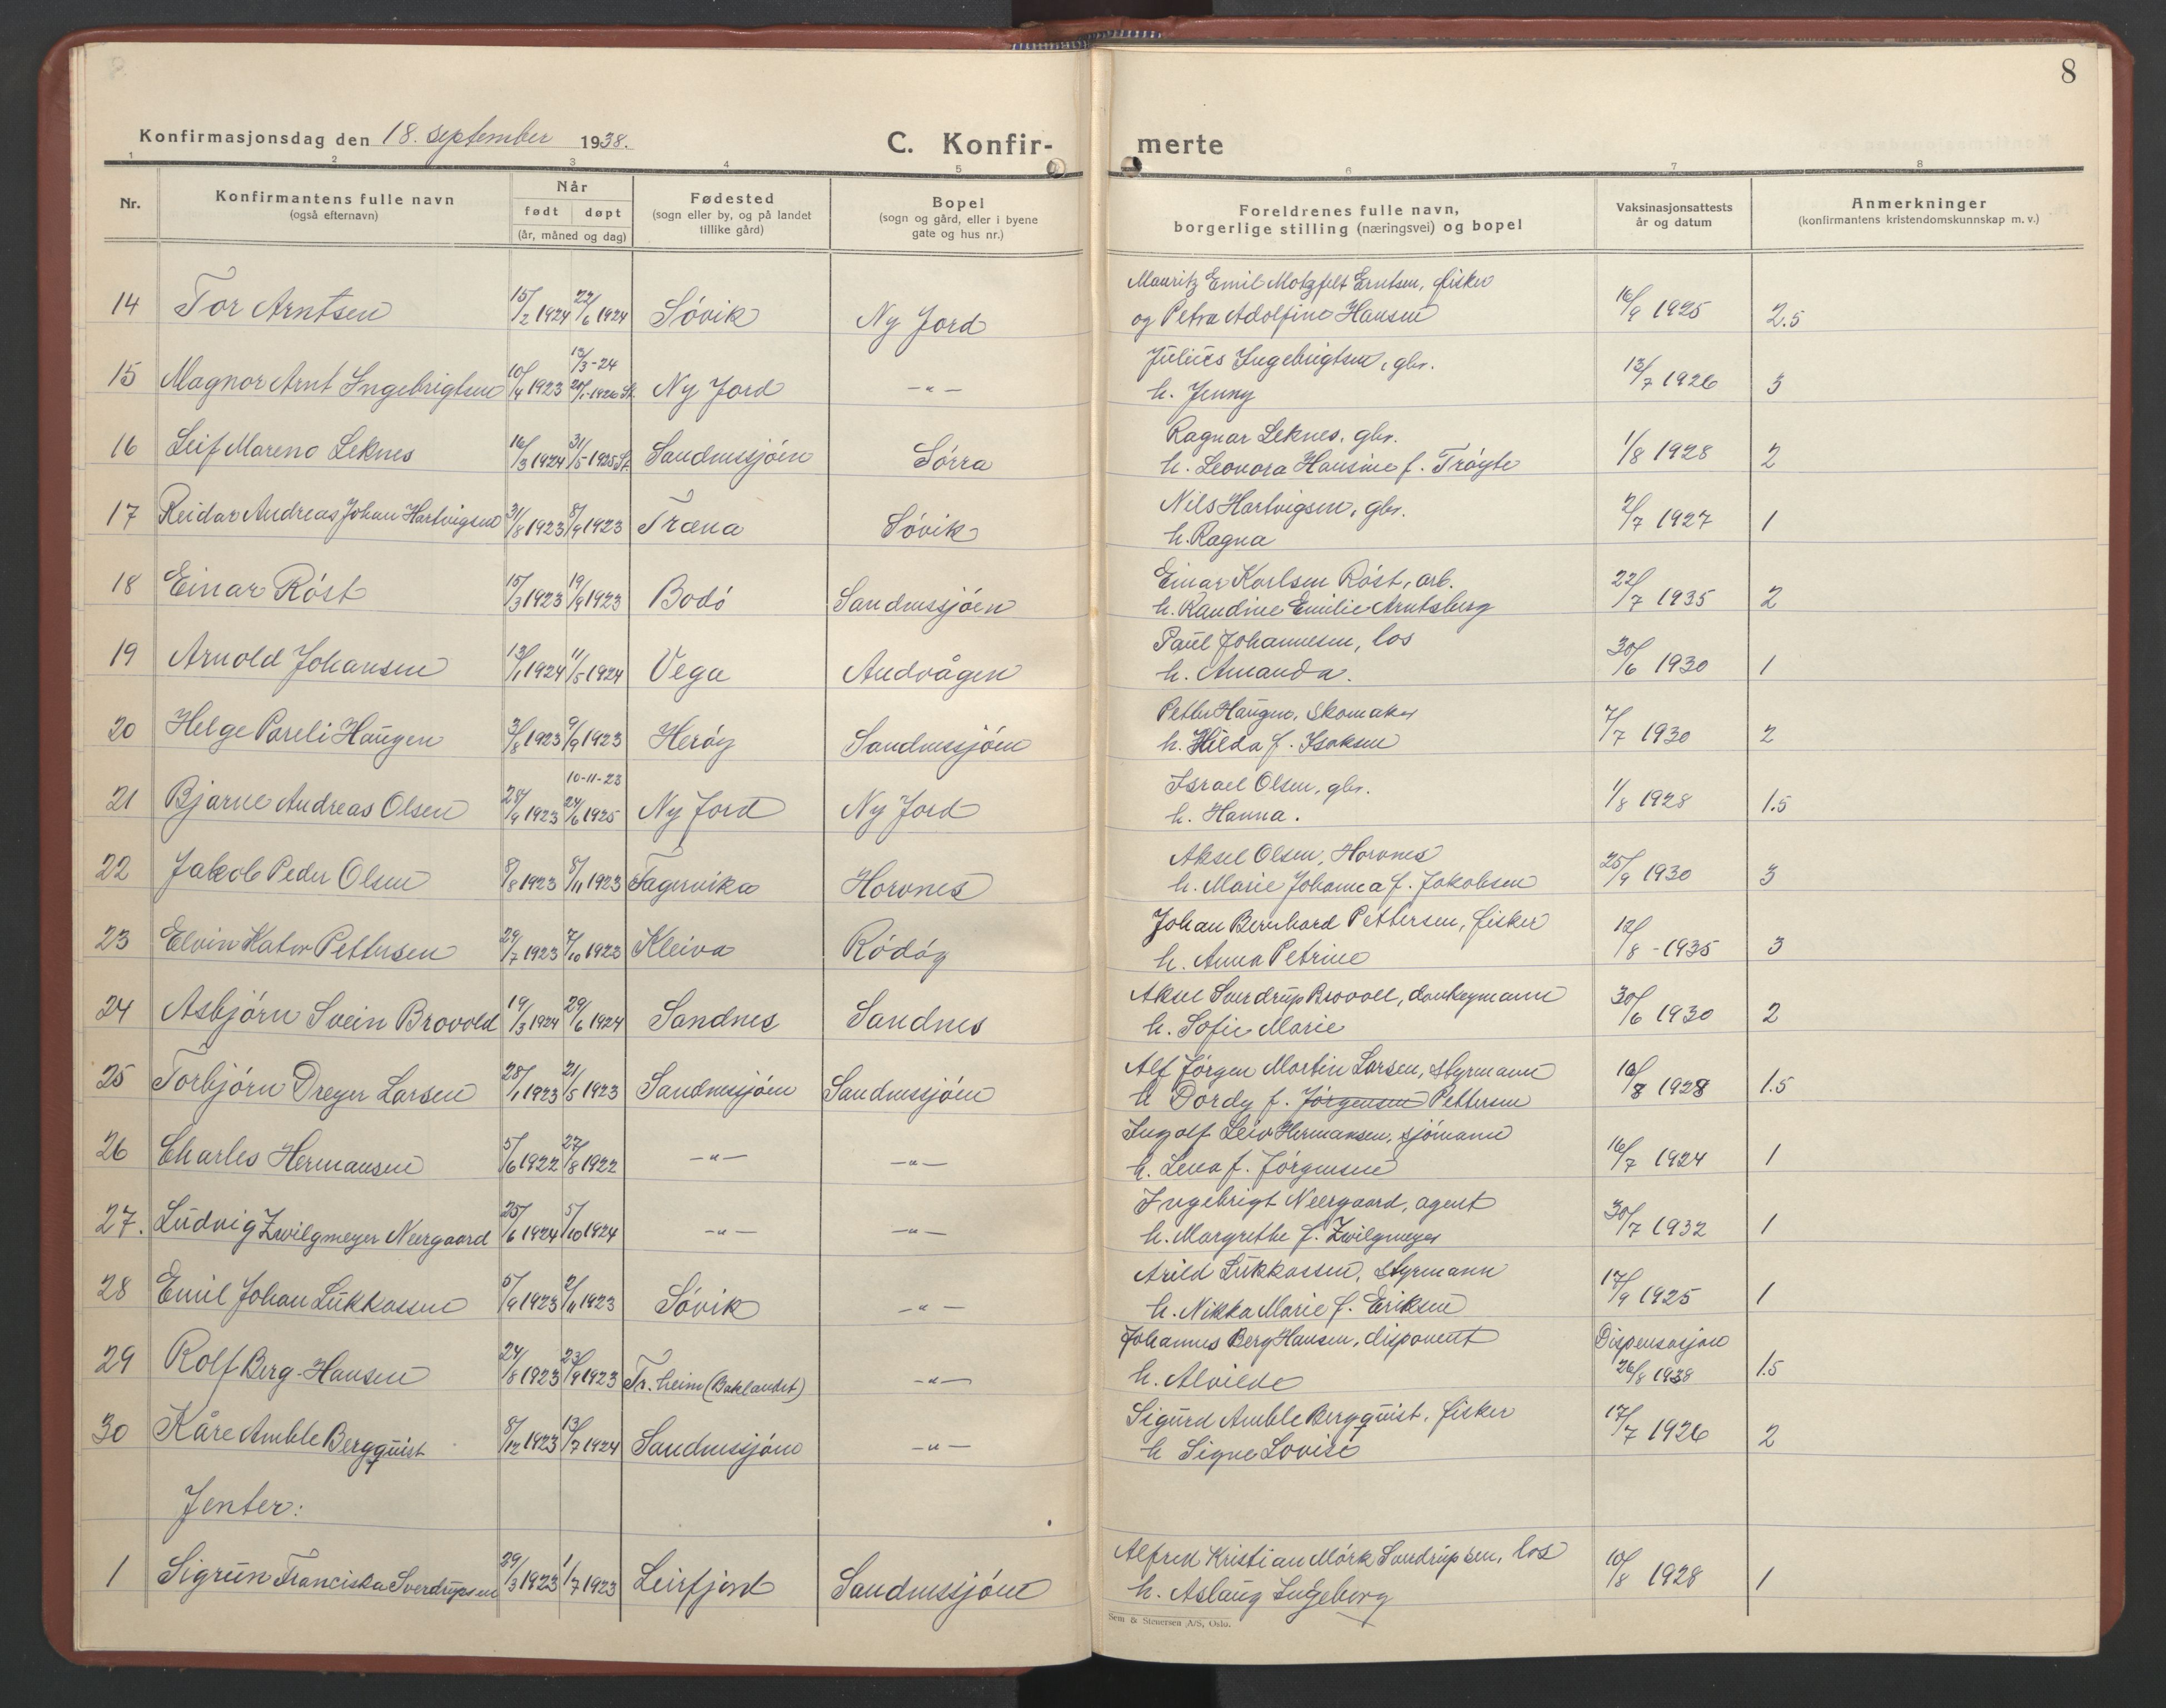 8
Konfirmasjonsdag den 18. september 1938.
C. Konfir-merte
1 2 3 4 5 6 7 8
Nr. | Konfirmantens fulle navn (også efternavn) | Når født døpt (år, måned og dag) | Fødested (sogn eller by, og på landet tillike gård) | Bopel (sogn og gård, eller i byene gate og hus nr.) | Foreldrenes fulle navn, borgerlige stilling (næringsvei) og bopel | Vaksinasjonsattests år og datum | Anmerkninger (konfirmantens kristendomskunnskap m. v.)
14 Tor Arntsen 15/2 1924 22/6 1924 Søvik Ny Jord Mauritz Emil Motzfelt Erntsen, fisker 16/9 1925 2.5
og Petra Adolfine Hansen
15 Magnor Arnt Ingebrigtsen 10/4 1923 13/3-24 Ny Jord -"- Julius Ingebrigtsen, gbr. 13/7 1926 3
20/1-1926 St. h. Jenny
16 Leif Mareno Leknes 16/3 1924 31/5-1925 St. Sandnessjøen Sørra Ragnar Leknes, gbr. 1/8 1928 2
h. Leonora Hansine f. Trøyte
17 Reidar Andreas Johan Hartvigsen 31/8 1923 8/9 1923 Træna Søvik Nils Hartvigsen, gbr. 2/7 1927 1
h. Ragna
18 Einar Røst 15/3 1923 19/9 1923 Bodø Sandnessjøen Einar Karlsen Røst, arb. 22/7 1935 2
h. Randine Emilie Arntsberg
19 Arnold Johansen 13/1 1924 11/5 1924 Vega Andvågen Paul Johannesen, los 30/6 1930 1
h. Amanda.
20 Helge Pareli Haugen 3/8 1923 9/9 1923 Herøy Sandnessjøen Petter Haugen, skomaker 7/7 1930 2
h. Hilda f. Isaksen
21 Bjarne Andreas Olsen 28/9 1923 10-11-23 Ny Jord Ny Jord Israel Olsen, gbr. 1/8 1928 1.5
24/6 1925 h. Hanna.
22 Jakob Peder Olsen 8/8 1923 8/11 1923 Fagervika Horvnes Aksel Olsen, Horvnes 25/9 1930 3
h. Marie Johanna f. Jakobsen
23 Elvin Kator Pettersen 29/7 1923 7/10 1923 Kleiva Rødøy Johan Bernhard Pettersen, fisker 12/8-1935 3
h. Anna Petrine
24 Asbjørn Svein Brovold 19/3 1924 29/6 1924 Sandnes Sandnes Aksel Sverdrup Brovoll, donkeymann 30/6 1930 2
h. Sofie Marie
25 Torbjørn Dreyer Larsen 28/1 1923 21/5 1923 Sandnessjøen Sandnessjøen Alf Jørgen Martin Larsen, styrmann 10/8 1928 1.5
h Dordy f. Jørgensen Pettersen
26 Charles Hermansen 5/6 1922 27/8 1922 -"- -"- Ingolf Leiv Hermansen, sjømann 16/7 1924 1
h. Lena f. Jørgensen
27. Ludvig Zwilgmeyer Neergaard 25/6 1924 5/10 1924 -"- -"- Ingebrigt Neergaard, agent 30/7 1932 1
h. Margrethe f. Zwilgmeyer
28 Emil Johan Lukkassen 5/9 1923 2/11 1923 Søvik -"- Arild Lukkassen, styrmann 17/9 1925 1
h. Nikka Marie f. Eriksen
29 Rolf Berg-Hansen 24/8 1923 23/9 1923 Tr.heim (Baklandet) -"- Johannes Berg Hansen, disponent Dispensasjon 1.5
h. Alvilde 26/8 1938
30 Kåre Amble Bergquist 8/12 1923 13/7 1924 Sandnessjøen -"- Sigurd Amble Bergquist, fisker 17/7 1926 2
h Signe Lovise
Jenter:
1 Sigrun Franciska Sverdrupsen 29/3 1923 1/7 1923 Leirfjord Sandnessjøen Alfred Kristian Mörk Sverdrupsen, los 10/8 1928 1
h. Aslaug Ingeborg
Sem & Stenersen A/S, Oslo.